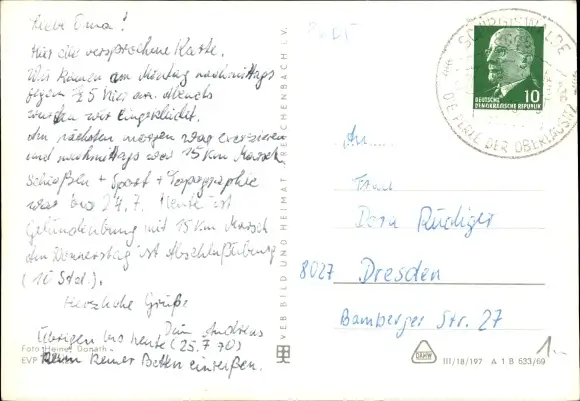 Liebe Oma!
Hier die versprochene Karte.
Wir kamen am Montag nachmittags
gegen 1/2 5 hier an. Abends
wurden wir eingekleidet.
Am nächsten morgen war exerzieren
und nachmittags war 15 Km Marsch
Schießen + Sport + Topographie
war bis 24.7. Heute ist
Geländeübung mit 15 Km Marsch
Am Donnerstag ist Abschlußübung
(10 Std.).
Herzliche Grüße
Dein Andreas
Übrigen bis heute (25.7.70)
keiner Betten einreißen.
Foto Heiner Donath
EVP
VEB BILD UND HEIMAT REICHENBACH I. V.
SCHIRGISWALDE
DIE PERLE DER OBERLAUSITZ
10
DEUTSCHE
DEMOKRATISCHE REPUBLIK
An.....
Frau
Dora Rüdiger
8027 Dresden
Bamberger Str. 27
DAHW
III/18/197 A 1 B 633/69
1.-